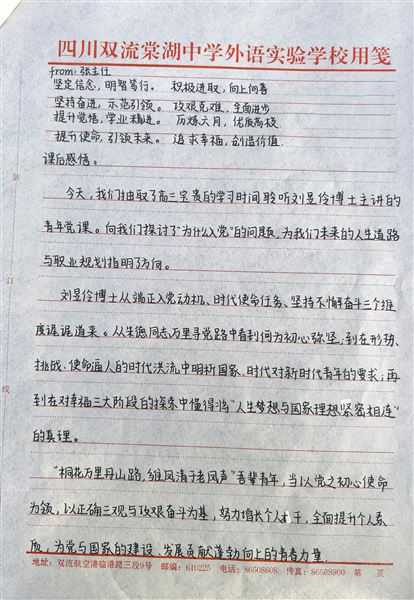 四川双流棠湖中学外语实验学校用笺
from: 张主任
坚定信念，明智笃行。 积极进取，向上向善
坚持奋进，示范引领。 攻艰克难，全面进步
提升觉悟，学业精进。 历炼六月，优质高校
提升使命，引领未来。 追求幸福，创造价值.
课后感悟：
今天，我们抽取了高三宝贵的学习时间聆听刘昱伶博士主讲的
青年党课。向我们探讨了"为什么入党"的问题，为我们未来的人生道路
装
与职业规划指明了方向。
订
刘昱伶博士从端正入党动机、时代使命任务、坚持不懈奋斗三个维
度谆谆道来。从朱德同志万里寻党路中看到何为初心弥坚，到在形势、
挑战、使命逼人的时代洪流中明析国家、时代对新时代青年的要求；再
线
到在对幸福三大阶段的探索中懂得将"人生梦想与国家理想紧密相连"
的真理。
"桐花万里丹山路，雏凤清于老凤声"吾辈青年，当以党之初心使命
为领，以正确三观与攻艰奋斗为基，努力增长个人才干，全面提升个人素
质，为党与国家的建设、发展贡献蓬勃向上的青春力量.
地址：双流航空港临港路三段9号 邮编：610225 电话：86508608 传真：86508900 第 页